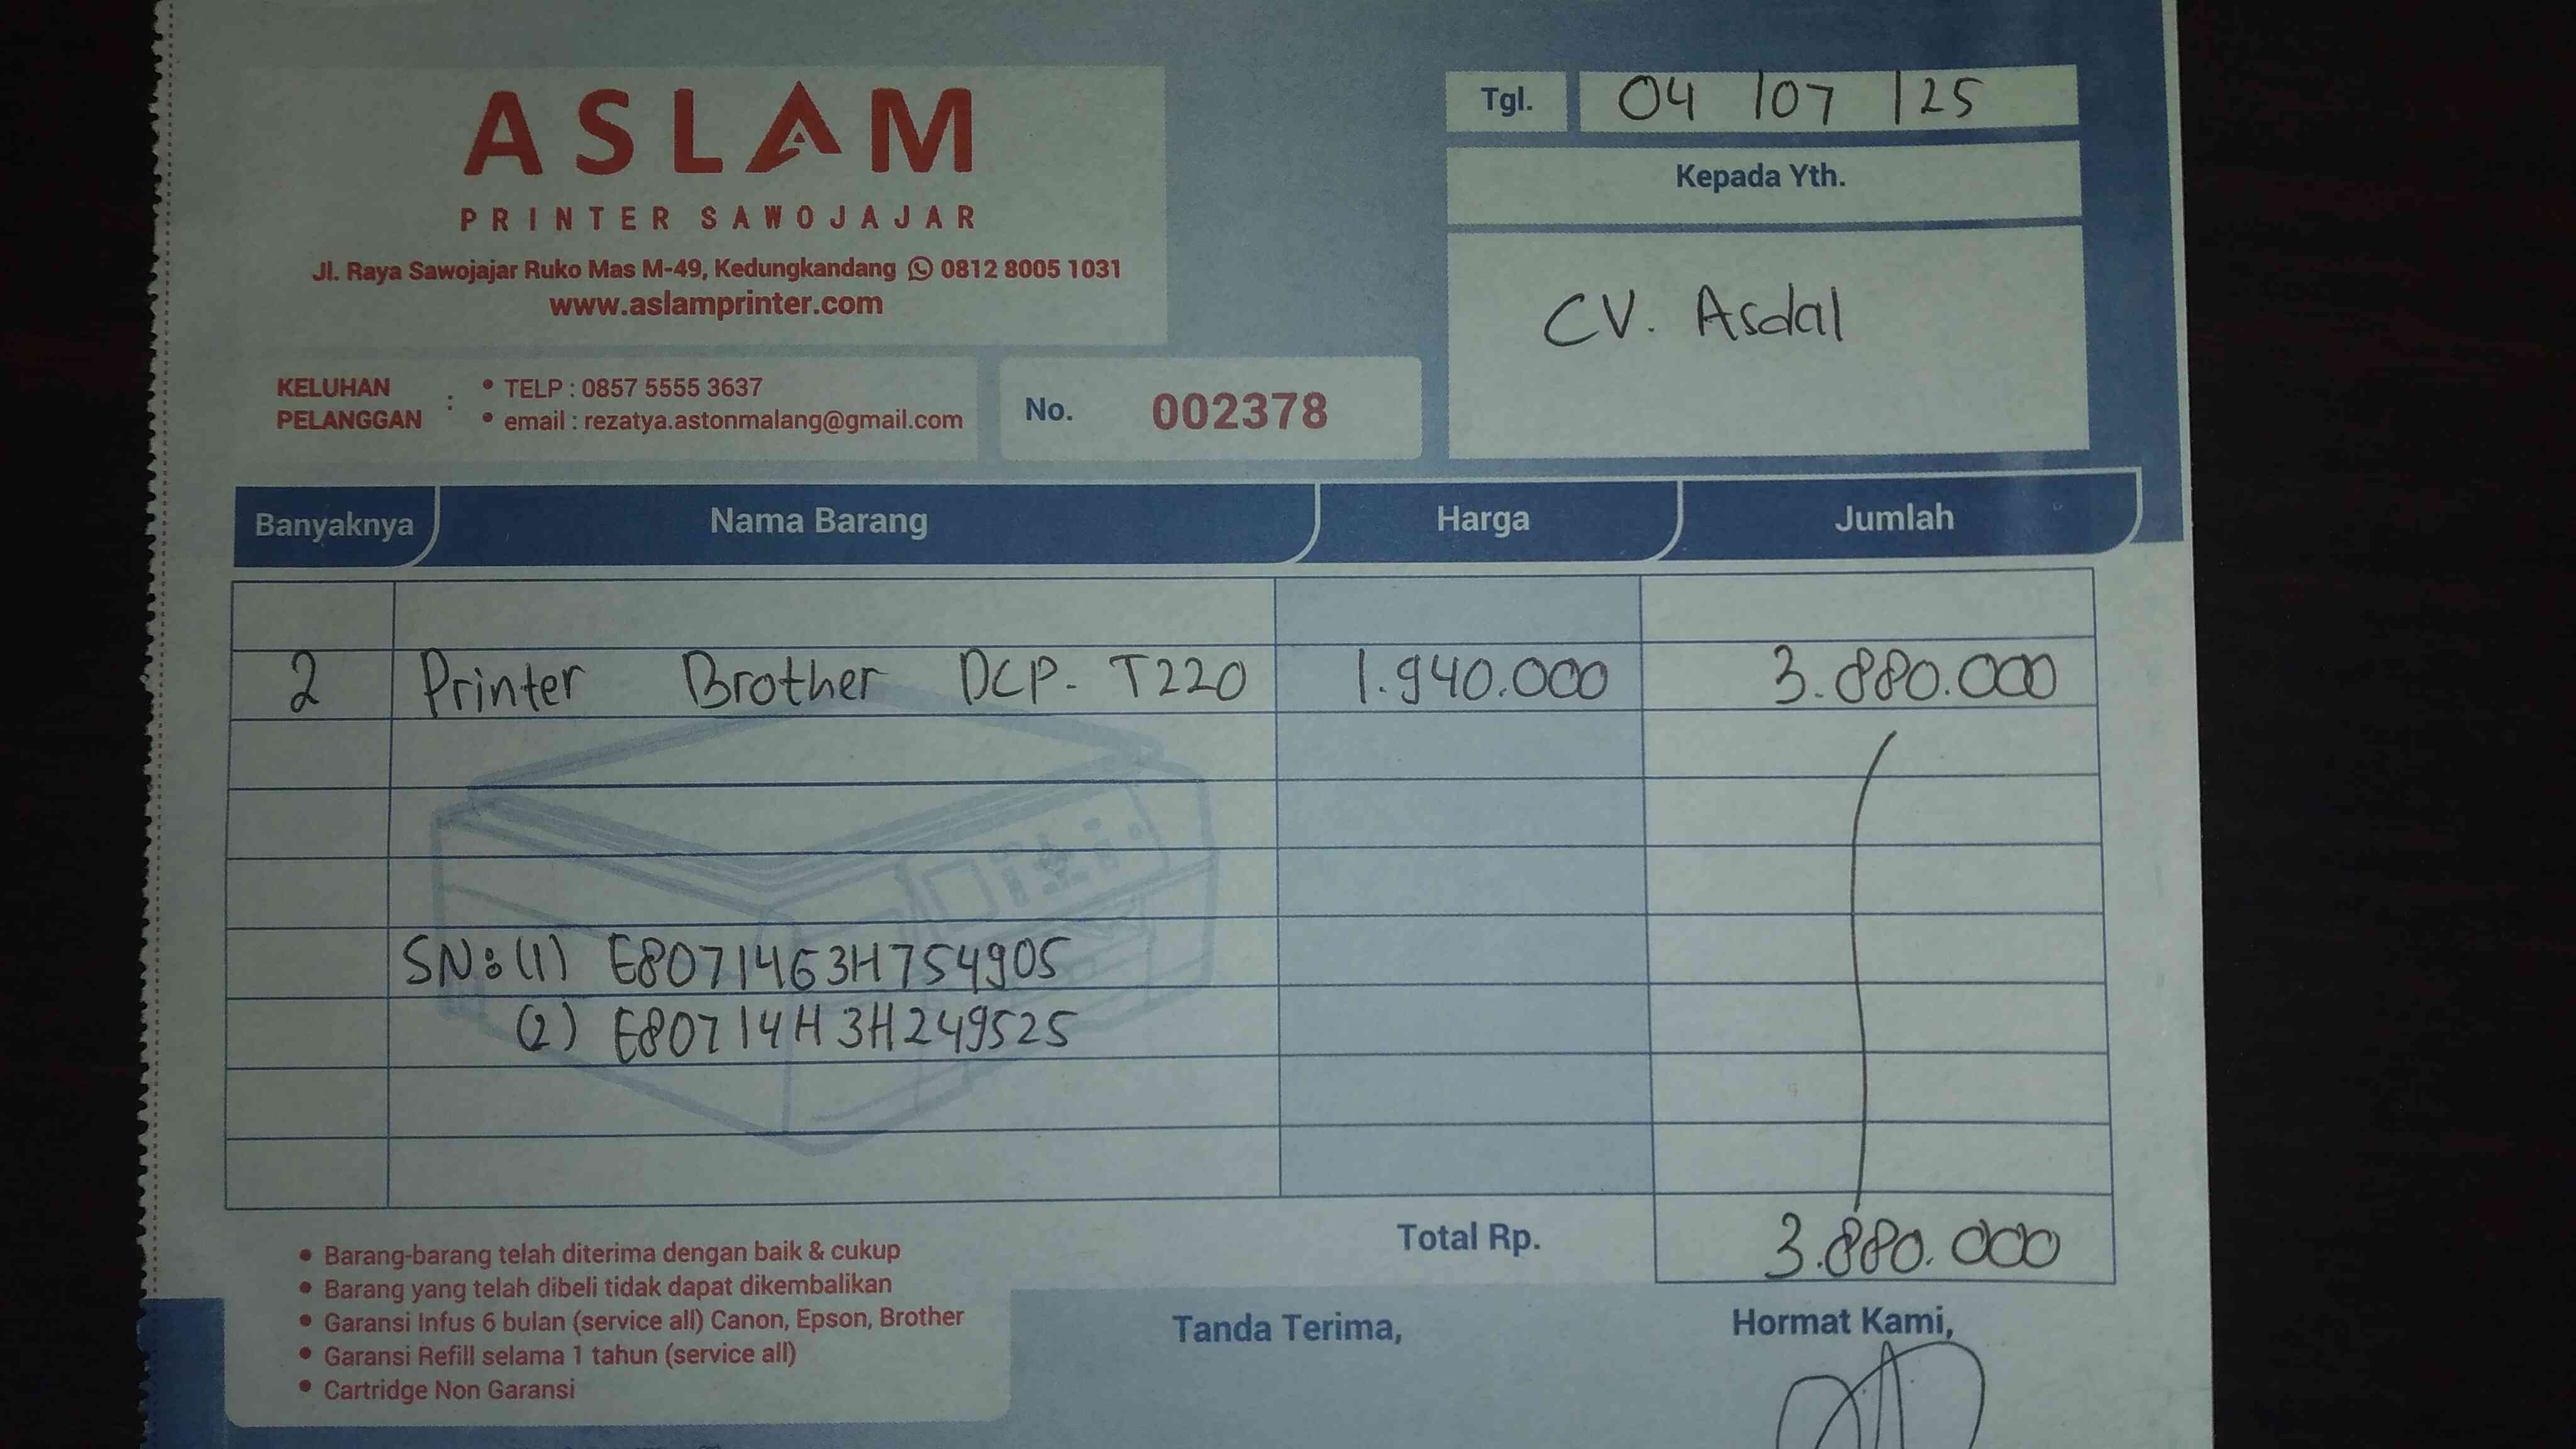 ASLAM
PRINTER SAWOJAJAR
Jl. Raya Sawojajar Ruko Mas M-49, Kedungkandang 0812 8005 1031
www.aslamprinter.com
KELUHAN PELANGGAN :
• TELP : 0857 5555 3637
• email : rezatya.astonmalang@gmail.com
No. 002378
Tgl. 04 / 07 / 25
Kepada Yth.
CV. Asdal
Banyaknya Nama Barang Harga Jumlah
2 Printer Brother DCP- T220 1.940.000 3.880.000
SN: (1) E80714G3H754905
(2) E80714H3H249525
Total Rp. 3.880.000
• Barang-barang telah diterima dengan baik & cukup
• Barang yang telah dibeli tidak dapat dikembalikan
• Garansi Infus 6 bulan (service all) Canon, Epson, Brother
• Garansi Refill selama 1 tahun (service all)
• Cartridge Non Garansi
Tanda Terima,
Hormat Kami,